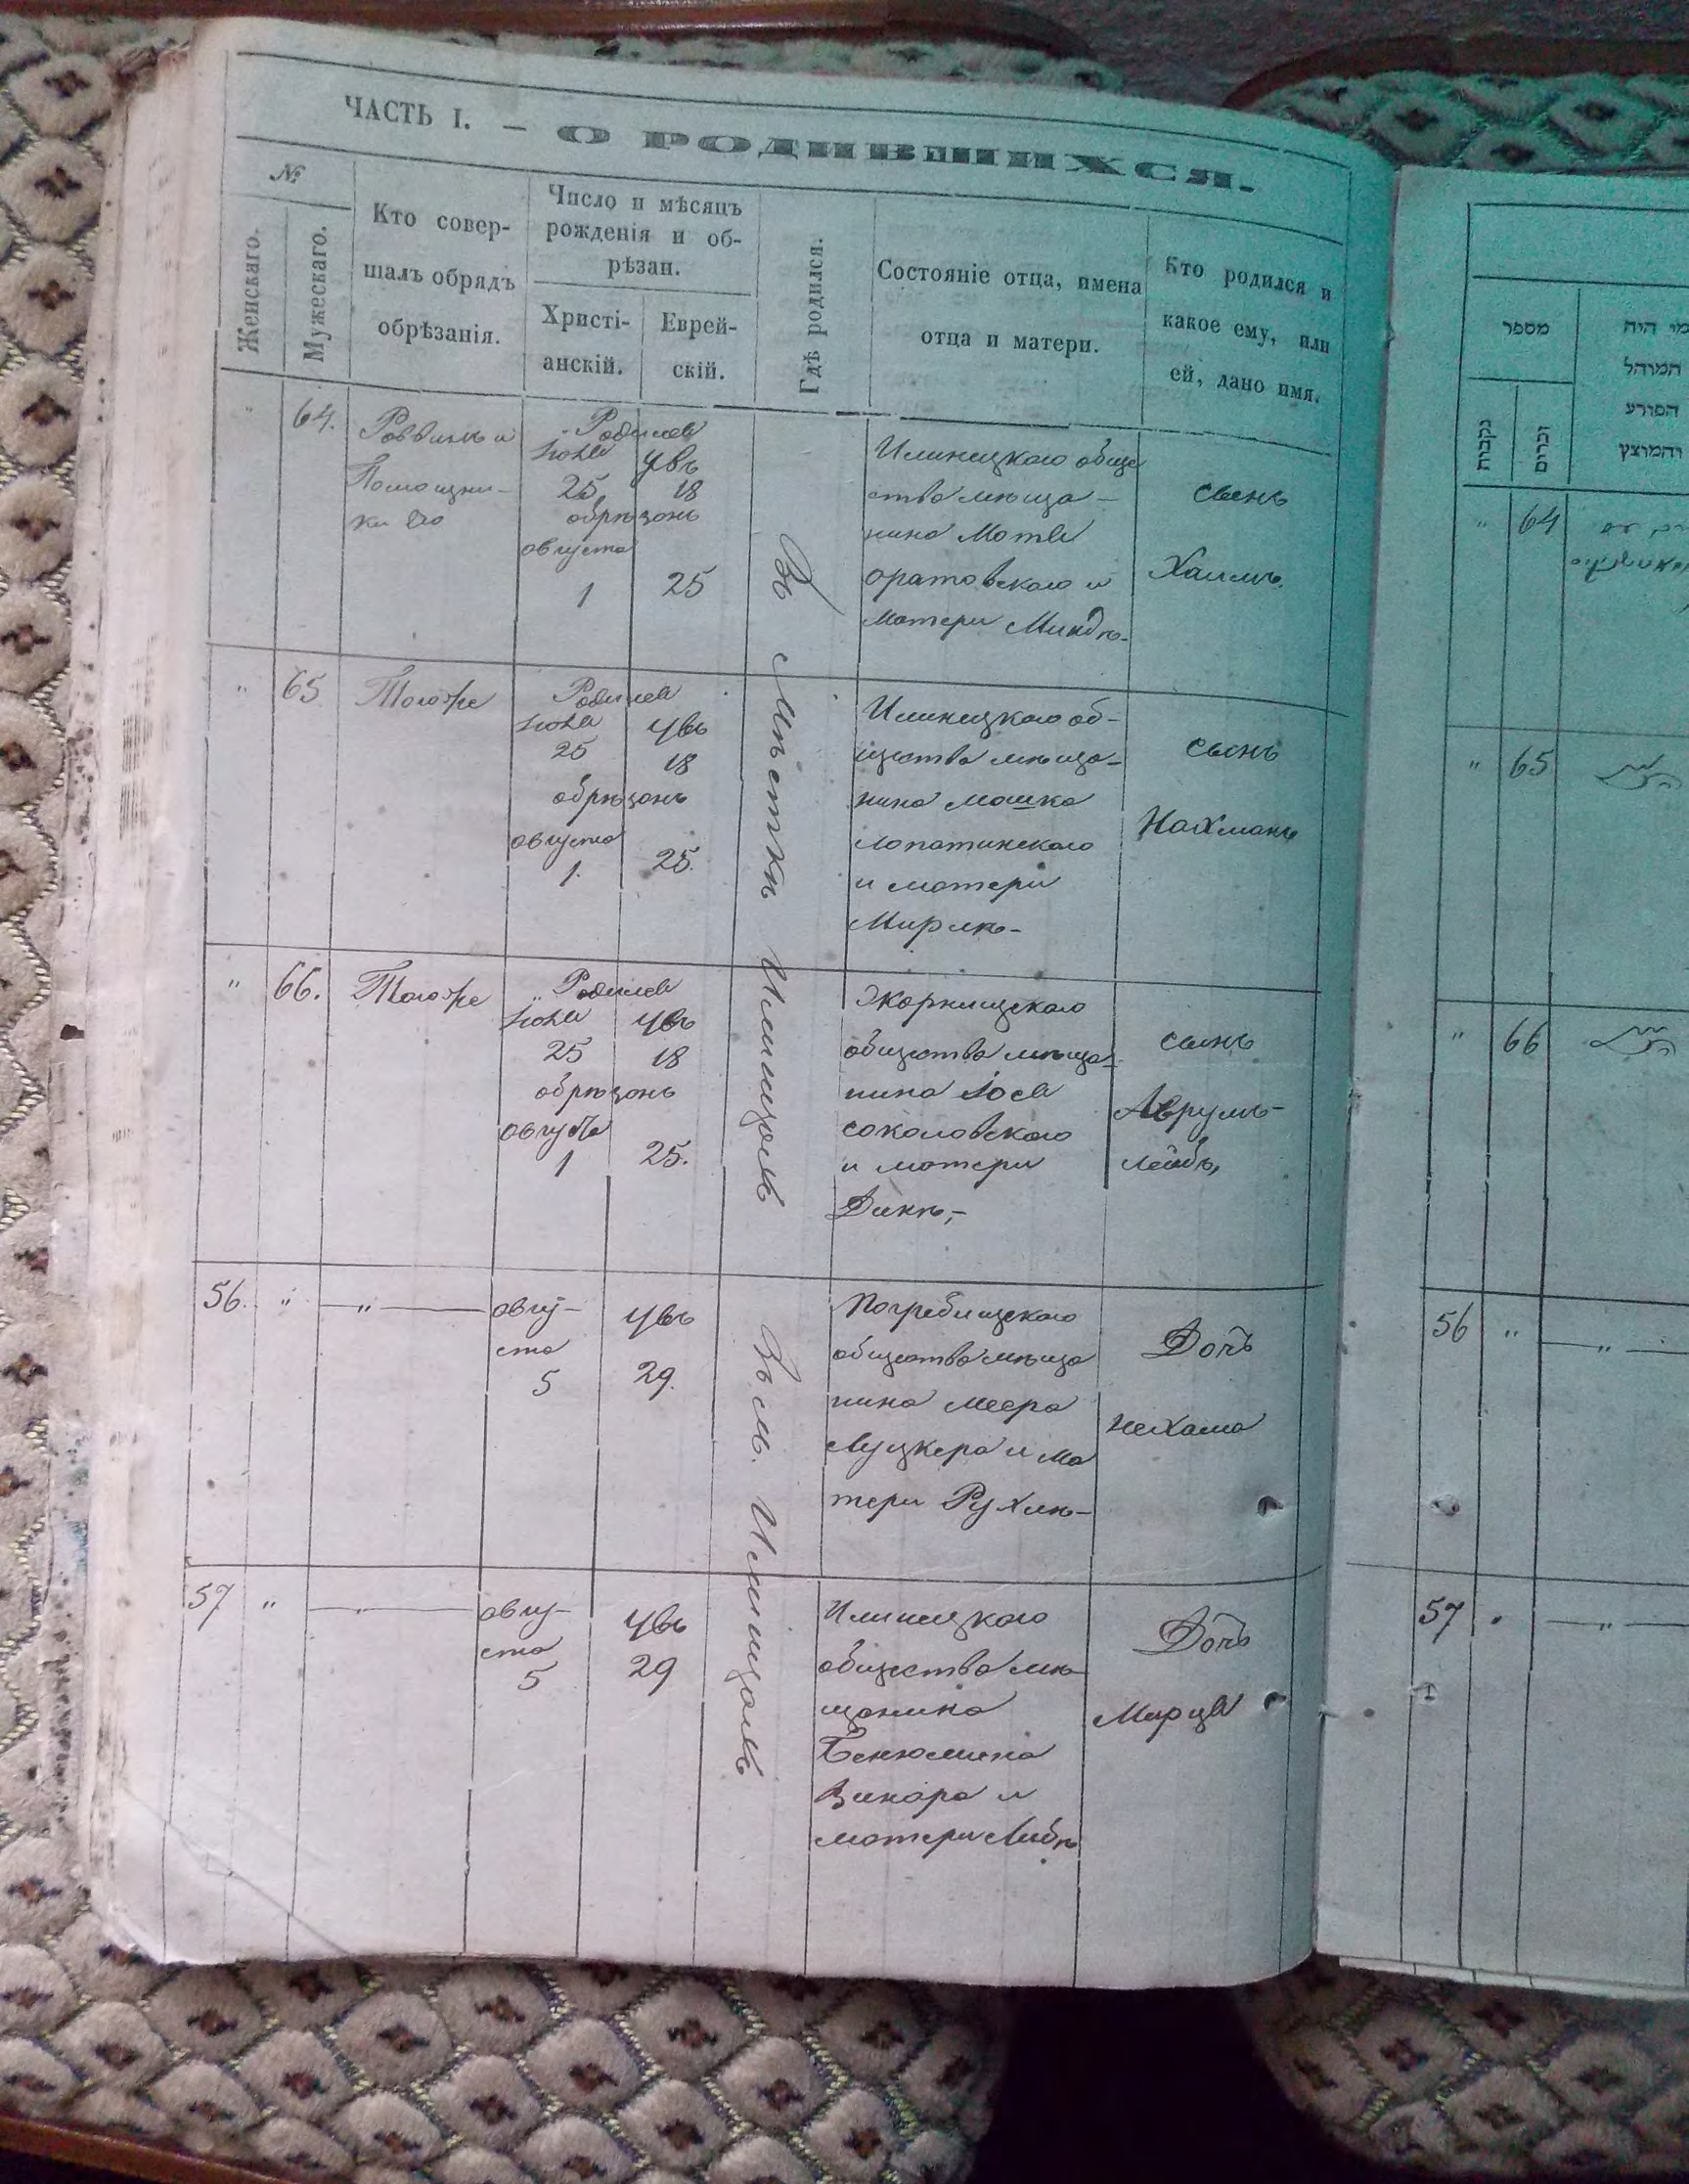 ЧАСТЬ I. — О РОДИВШИХСЯ.
№
Женскаго.
Мужескаго.
Кто совер-
шалъ обрядъ
обрѣзанія.
Число и мѣсяцъ
рожденія и об-
рѣзан.
Христі-
анскій.
Еврей-
скій.
Гдѣ родился.
Состояніе отца, имена
отца и матери.
Кто родился и
какое ему, или
ей, дано имя.
" 64.
Раввинъ и
Помощни-
ки его
Родился
Іюля
25
Увъ
18
обрѣзанъ
августа
1
25
Въ мѣстѣ Илинцахъ
Илинецкаго обще
ства мѣща-
нина Мотя
оратовскаго и
матери Миндъ-
сынъ
Хаимъ.
" 65
Тогоже
Родился
Іюля
25
Увъ
18
обрѣзанъ
августа
1.
25.
Илинецкаго об-
щества мѣща-
нина Мошка
лопатинскаго
и матери
Мирлѣ-
сынъ
Нахманъ
" 66.
Тогоже
Родился
Іюля
25
Увъ
18
обрѣзанъ
августа
1
25.
общества мѣща-
нина Іося
соколовскаго
и матери
Динѣ,-
сынъ
Аврумъ-
лейбъ,
56. " — " —
авгу-
ста
5
Увъ
29.
Въ м. Илинцахъ
Погребищскаго
общества мѣща
нина меера
Луцкера и ма
тери Рухлѣ-
Дочь
нехама
57 " — " —
авгу-
ста
5
Увъ
29
Илинецкаго
общества мѣ-
щанина
Бенюмина
Винара и
матери Либѣ
Дочь
Марця
מספר
נקבות
זכרים
מי היה
המוהל
הפורע
והמוצץ
" 64
" 65
" 66
56 " — " —
57 " — " —